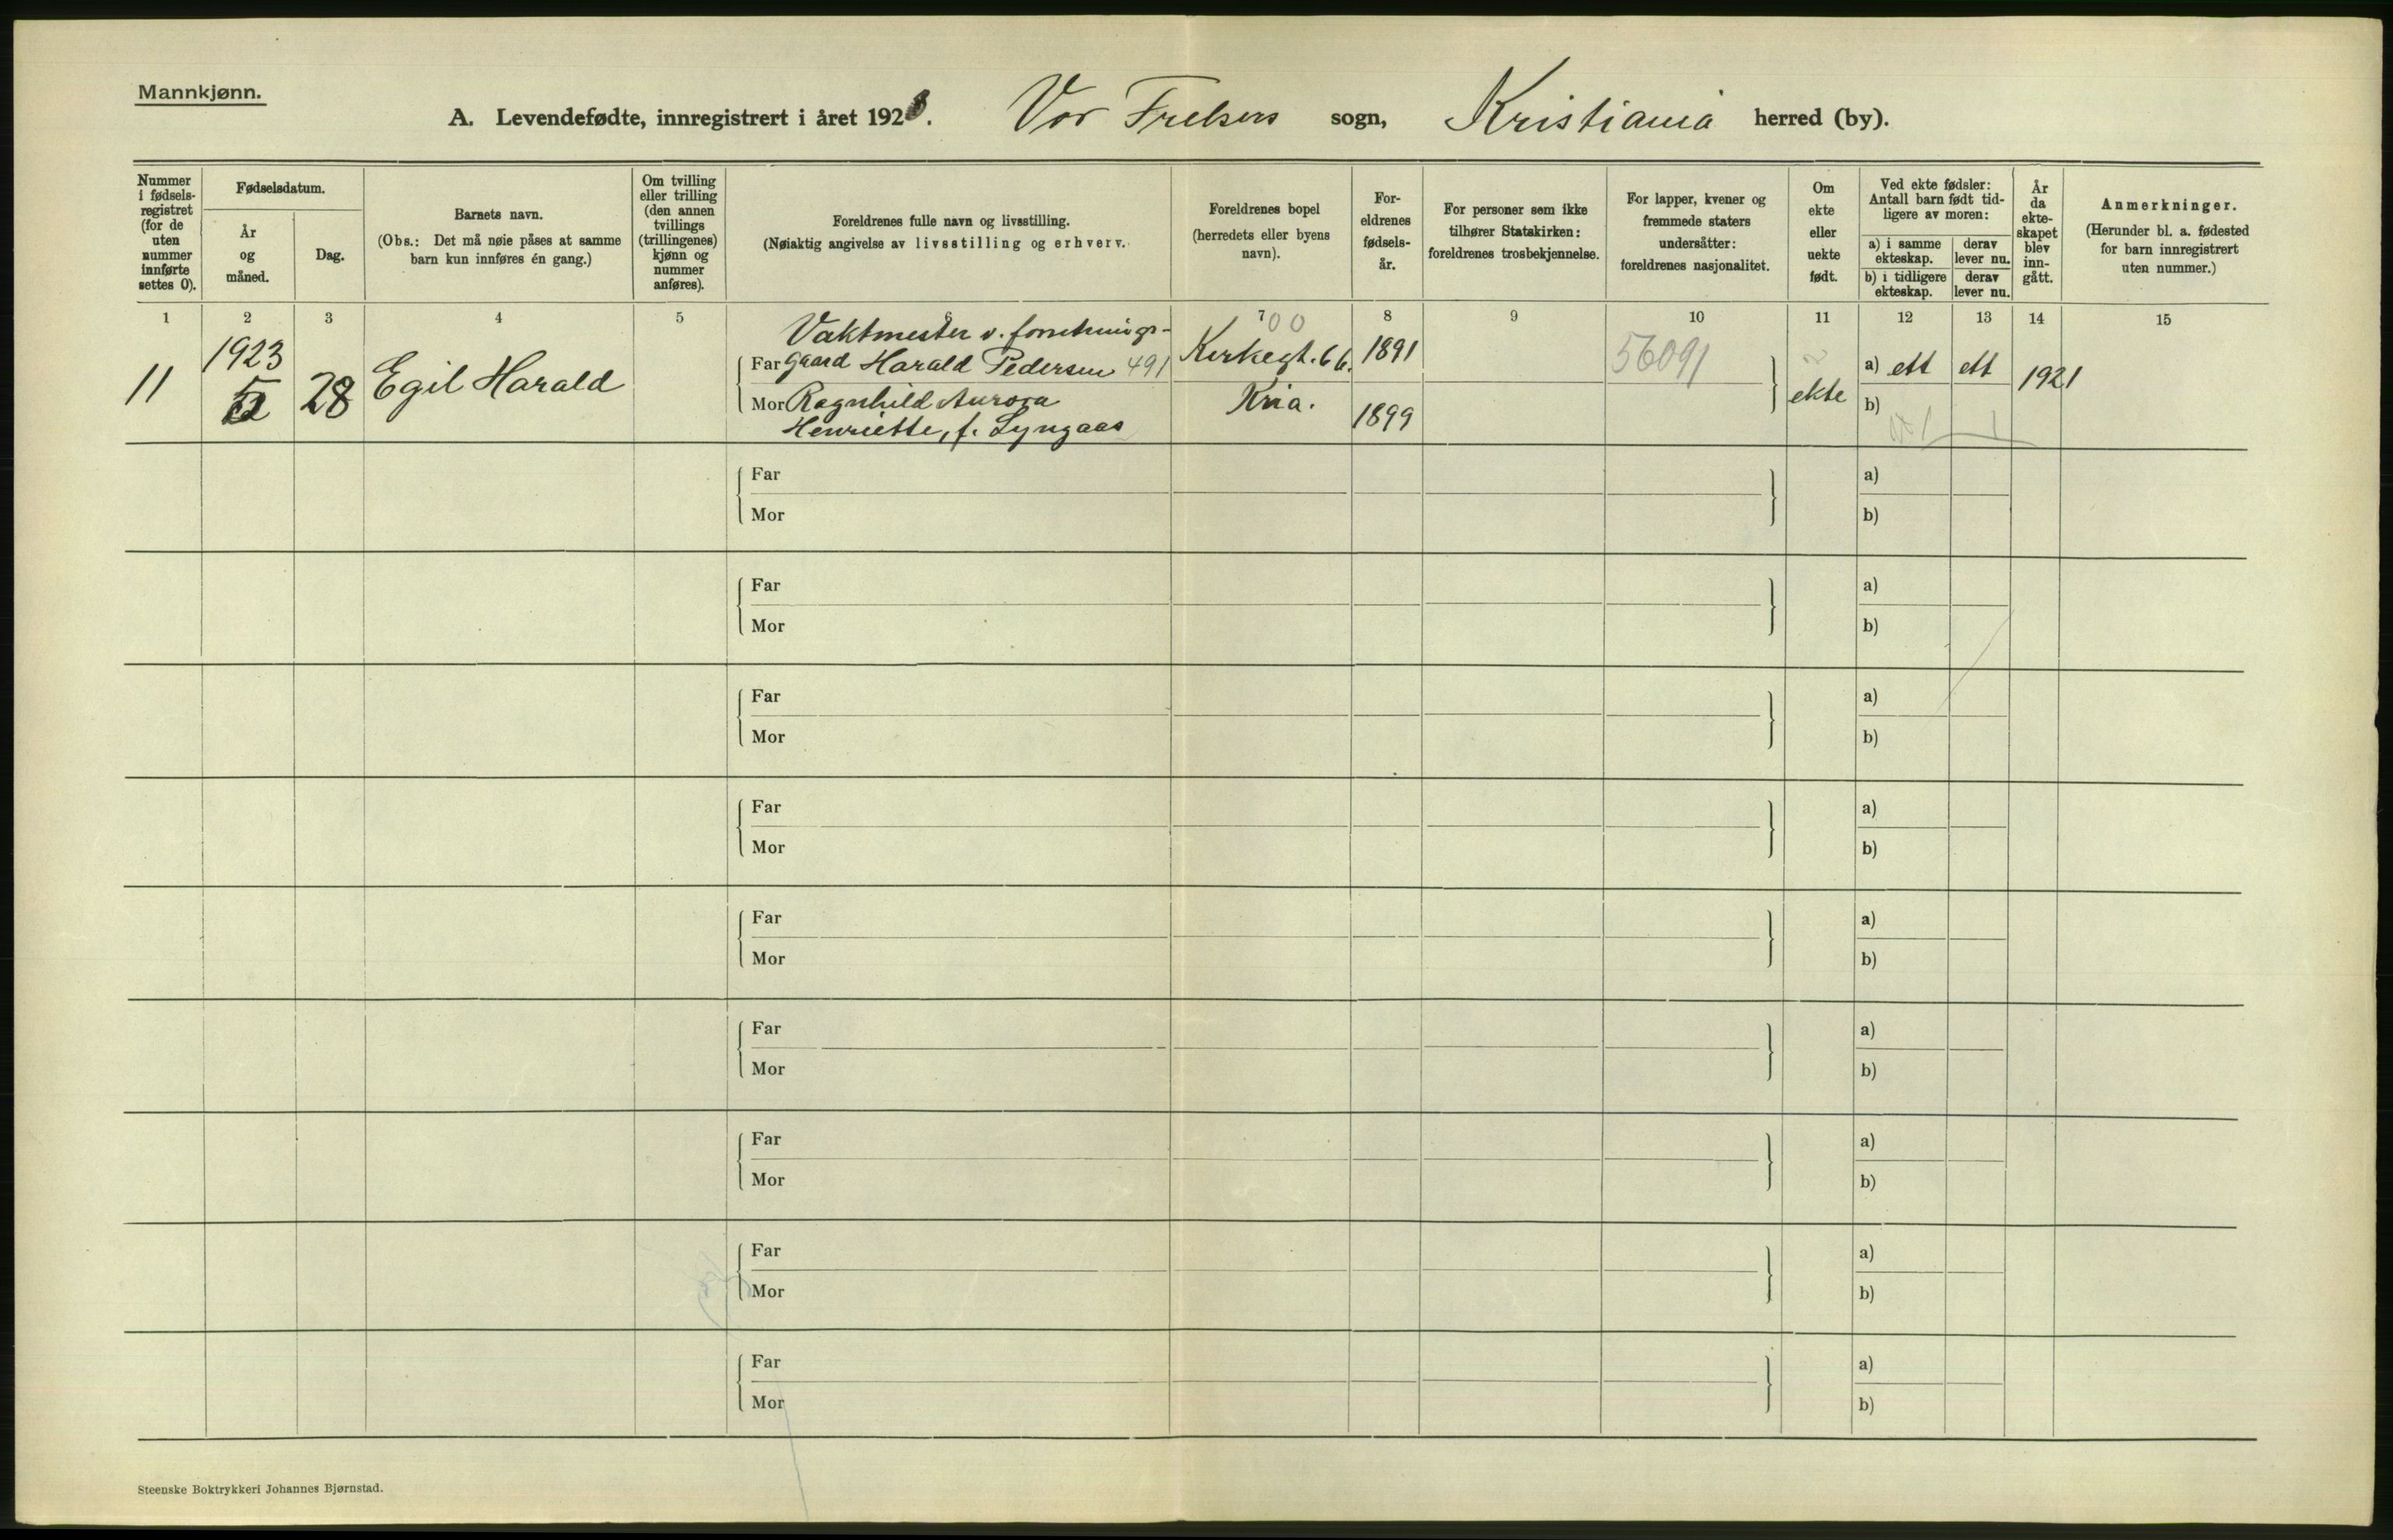 Mannkjønn.
A. Levendefødte, innregistrert i året 1923. Vor Frelsers sogn, Kristiania herred (by).
Nummer i fødselsregistret (for de uten nummer innførte settes 0).
Fødselsdatum.
År og måned.
Dag.
Barnets navn.
(Obs.: Det må nøie påses at samme barn kun innføres én gang.)
Om tvilling eller trilling (den annen tvillings (trillingenes) kjønn og nummer anføres).
Foreldrenes fulle navn og livsstilling.
(Nøiaktig angivelse av livsstilling og erhverv.
Foreldrenes bopel (herredets eller byens navn).
Foreldrenes fødselsår.
For personer som ikke tilhører Statskirken: foreldrenes trosbekjennelse.
For lapper, kvener og fremmede staters undersåtter: foreldrenes nasjonalitet.
Om ekte eller uekte født.
Ved ekte fødsler: Antall barn født tidligere av moren:
a) i samme ekteskap.
derav lever nu.
b) i tidligere ekteskap.
derav lever nu.
År da ekteskapet blev inngått.
Anmerkninger.
(Herunder bl. a. fødested for barn innregistrert uten nummer.)
1 2 3 4 5 6 7 8 9 10 11 12 13 14 15
00
Vaktmester v. forretnings-
11 1923 5 28 Egil Harald Far gaard Harald Pedersen 491 Kirkegt. 6 b. 1891 56091 2 ekte a) ett ett 1921
Mor Ragnhild Aurora Kria. 1899 b)
Henriette, f. Lyngaas
Far a)
Mor b)
Far a)
Mor b)
Far a)
Mor b)
Far a)
Mor b)
Far a)
Mor b)
Far a)
Mor b)
Far a)
Mor b)
Far a)
Mor b)
Far a)
Mor b)
Steenske Boktrykkeri Johannes Bjørnstad.